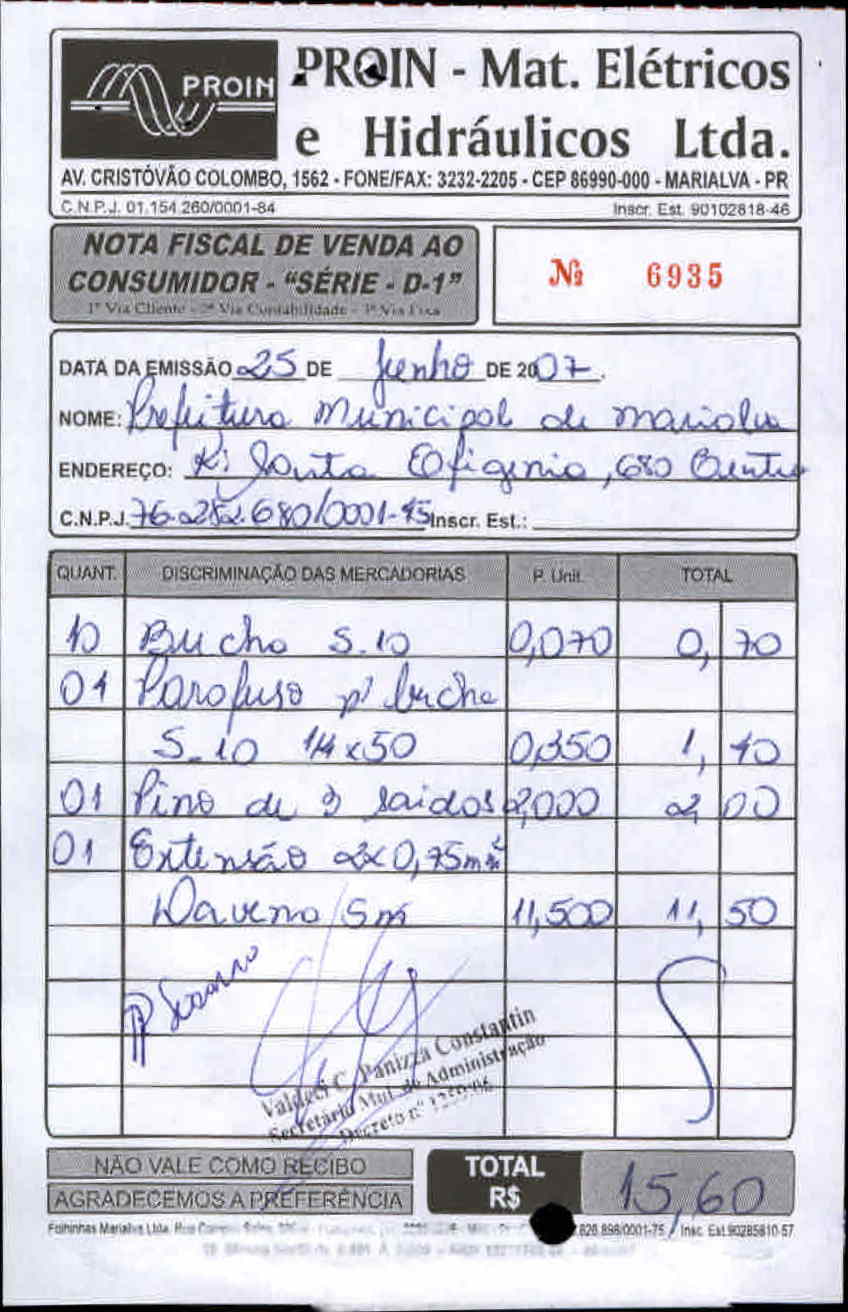 PROIN
PROIN - Mat. Elétricos
e Hidráulicos Ltda.
AV. CRISTÓVÃO COLOMBO, 1562 - FONE/FAX: 3232-2205 - CEP 86990-000 - MARIALVA - PR
C.N.P.J. 01.154.260/0001-84 Inscr. Est. 90102818-46
NOTA FISCAL DE VENDA AO
CONSUMIDOR - "SÉRIE - D-1"
1ª Via Cliente - 2ª Via Contabilidade - 3ª Via Fixa
Nº 6935
DATA DA EMISSÃO 25 DE Junho DE 2007.
NOME: Prefeitura Municipal de Marialva
ENDEREÇO: R: Santa Efigenia, 680 Centro
C.N.P.J. 76.282.680/0001-45 Inscr. Est.:
QUANT. DISCRIMINAÇÃO DAS MERCADORIAS P. Unit. TOTAL
10 Bucha S.10 0,070 0,70
04 Parafuso p/ bucha
S.10 1/4x50 0,350 1,40
01 Pino de 3 saidas 2,000 2,00
01 Extensão 2x0,75mm²
Daveno 5m 11,500 11,50
Valdeci C. Panizza Constantin
Secretário Mul. de Administração
Decreto nº
NÃO VALE COMO RECIBO
AGRADECEMOS A PREFERÊNCIA
TOTAL
R$ 15,60
Folhinhas Marialva Ltda. .828.898/0001-75 / Insc. Est. 90285810-57